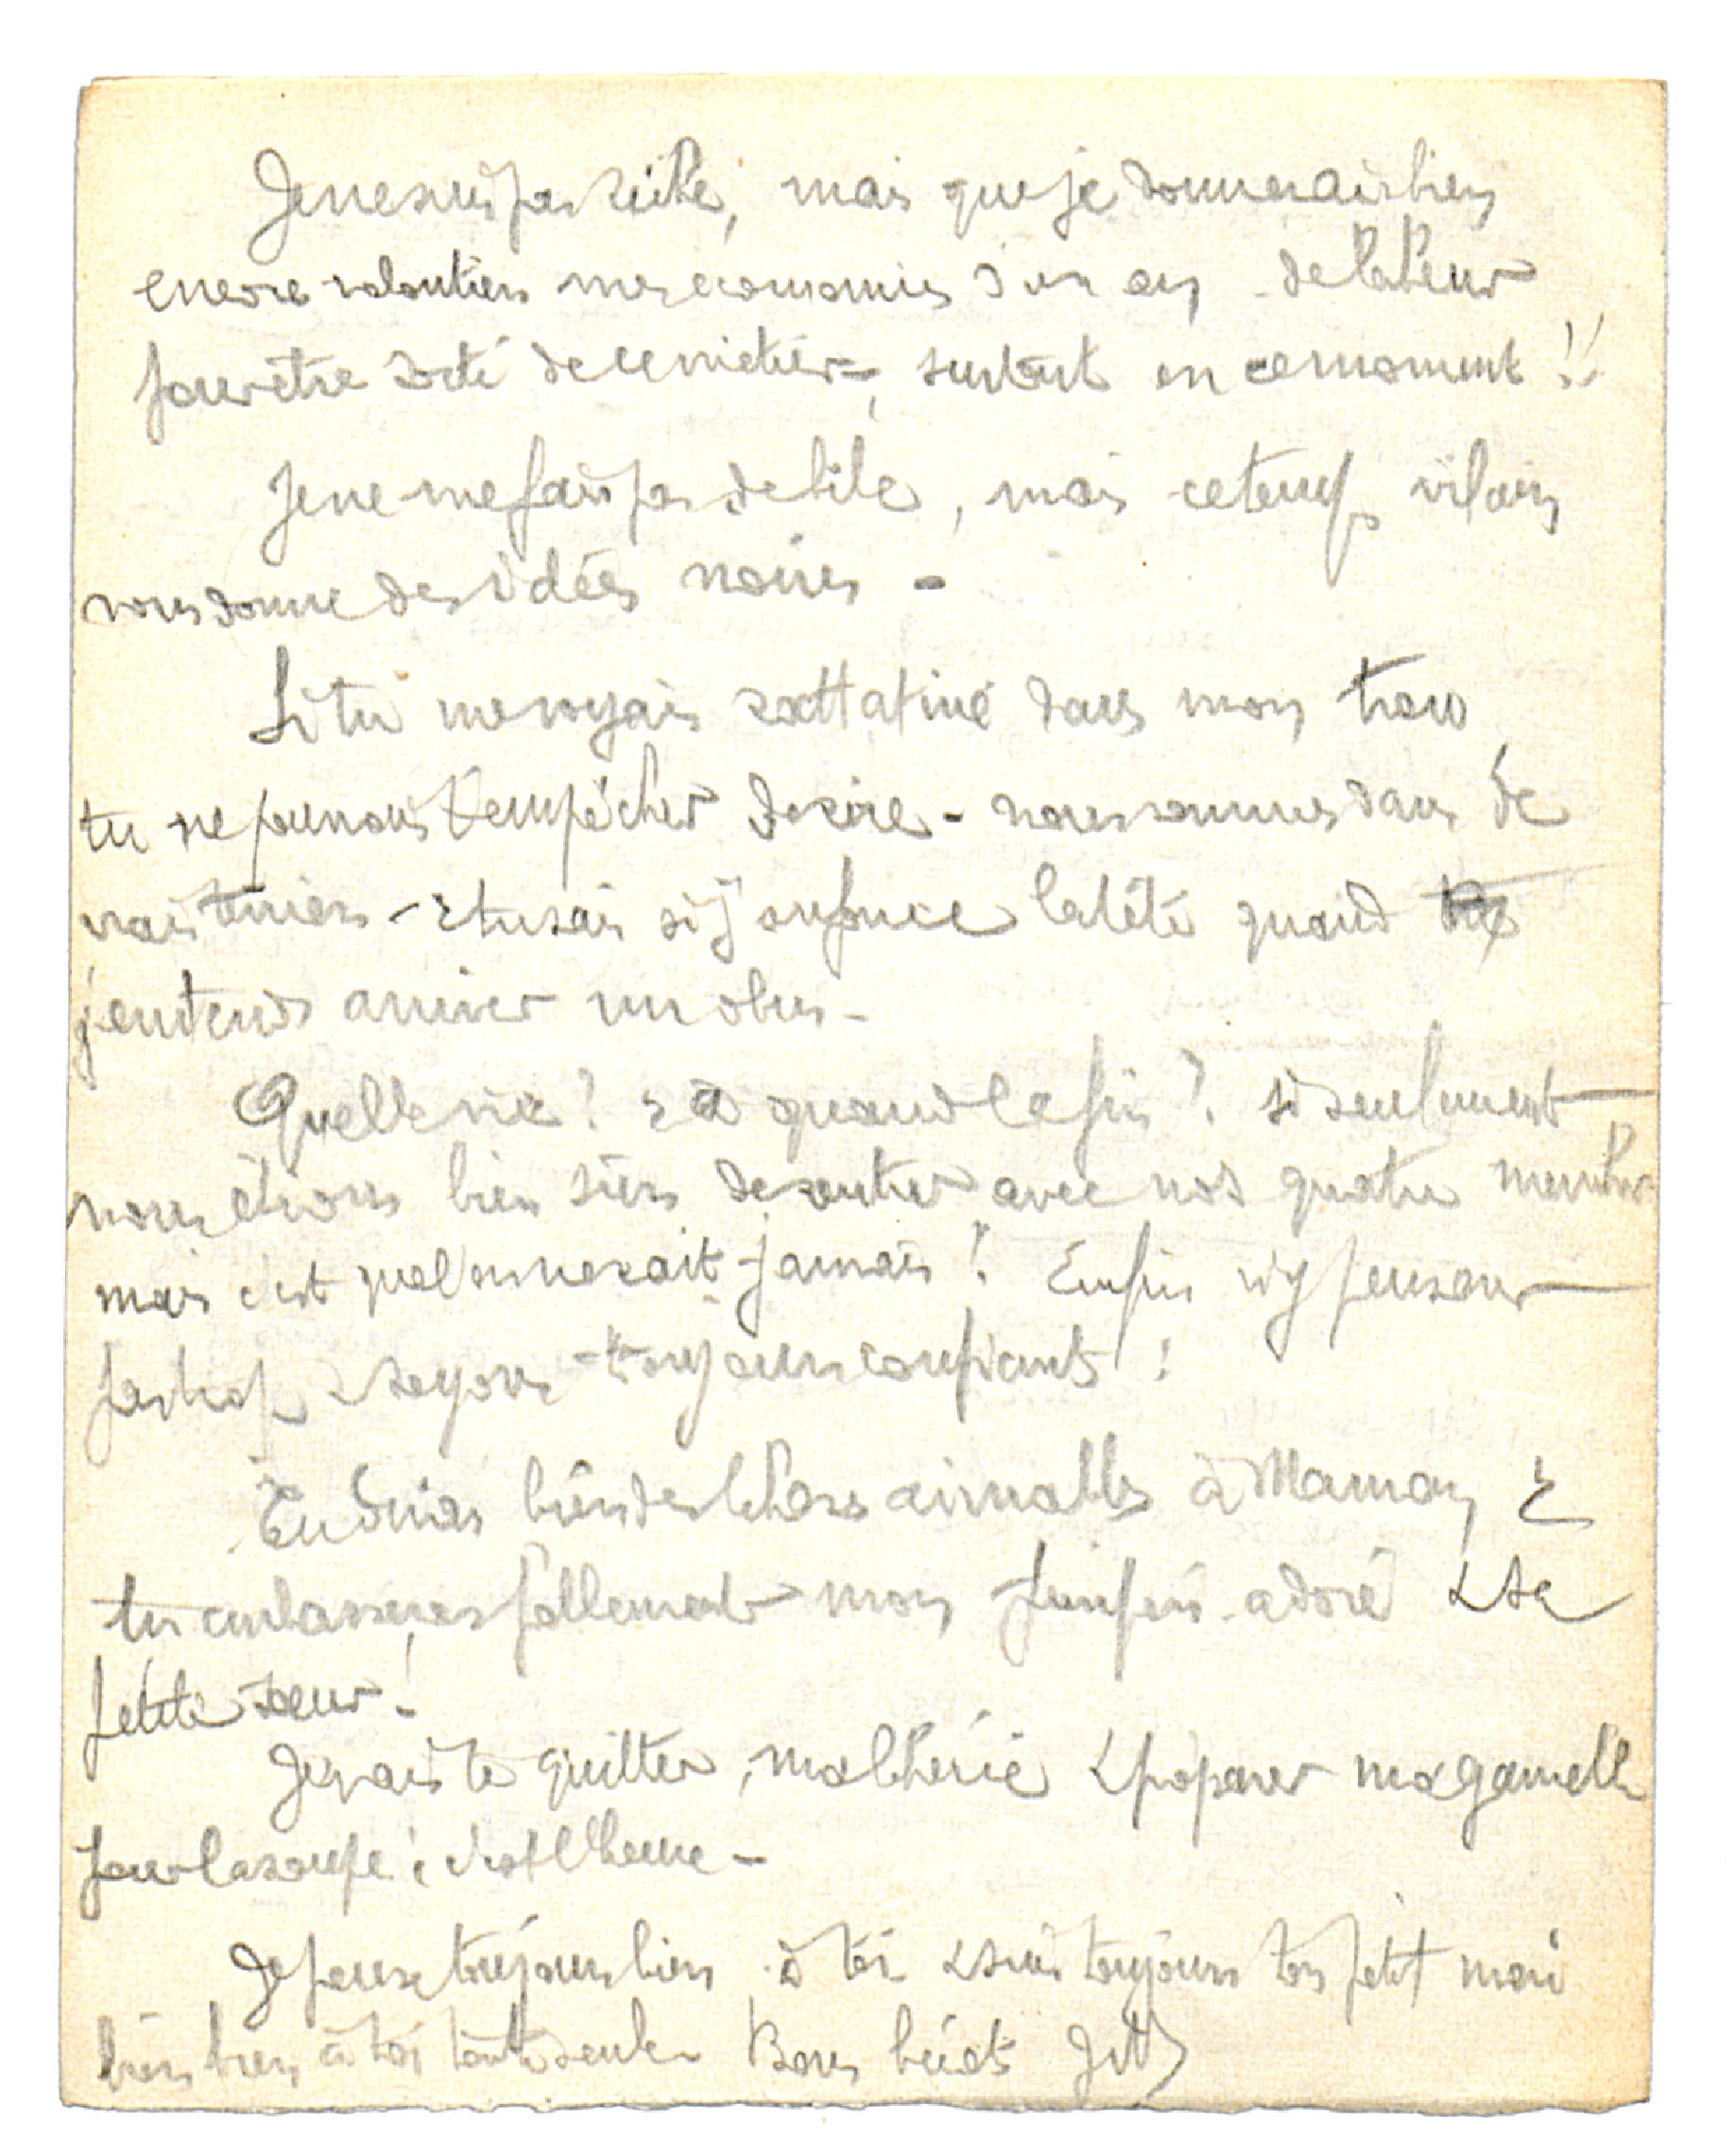 Je ne suis pas riche, mais que je donnerais bien
encore volontiers mes économies d'un an de labeur
pour être sorti de ce métier, surtout en ce moment !!
Je ne me fais pas de bile, mais ce temps vilain
nous donne des idées noires -
Si tu me voyais dans mon trou
tu ne pourrais t'empêcher de rire - nous sommes dans de
vrais terriers - et tu sais si j'enfonce la tête quand
j'entends arriver un obus -
Quelle vie ! & à quand la fin ? si seulement
nous étions bien sûrs de rentrer avec nos quatre membres
mais c'est qu'on ne sait jamais ! Enfin n'y pensons
pas trop & soyons toujours confiants !
Tu diras bien des choses aimables à Maman &
tu embrasseras follement mon adoré & sa
petite soeur !
Je vais te quitter, ma chérie & préparer ma gamelle
pour la soupe ; c'est l'heure -
Je pense toujours bien à toi & suis toujours ton petit mari
bien bien à toi toute seule Bons bécots